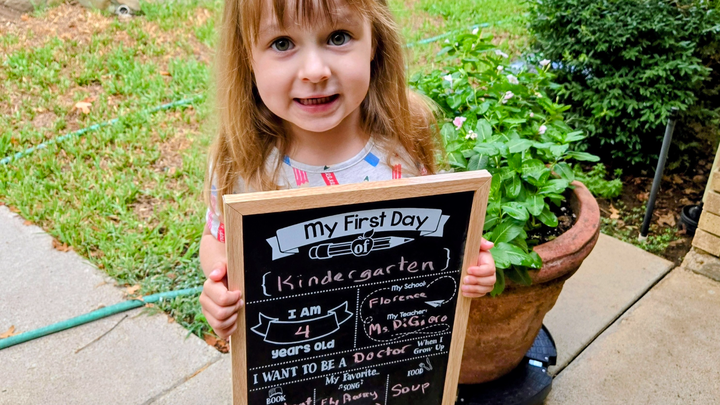 My First Day
of
Kindergarten
I AM
4
years Old
My School:
Florence
My Teacher:
Ms. DiGioro
I WANT TO BE A Doctor When I Grow Up
My Favorite...
BOOK
SONG?
FOOD
Fly Away
Soup